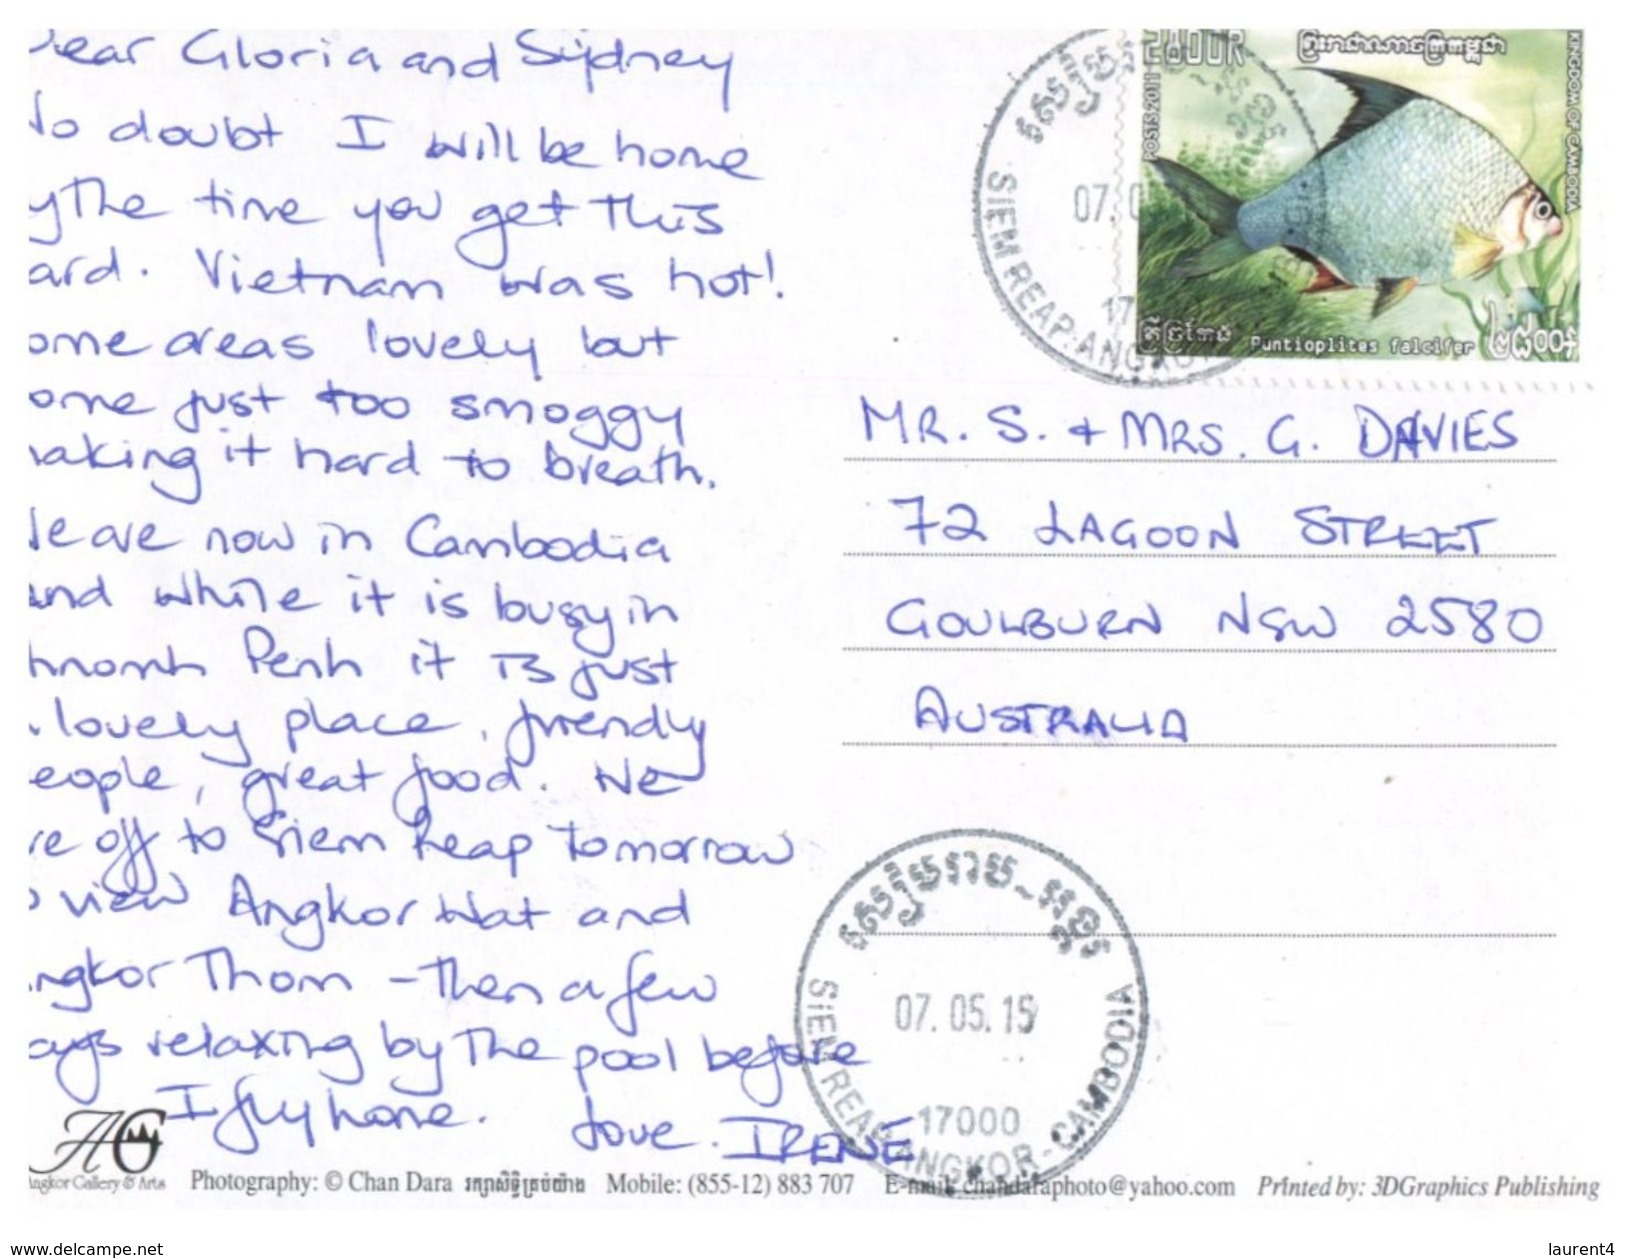 Dear Gloria and Sydney
No doubt I will be home
by the time you get this
ard. Vietnam was hot!
ome areas lovely but
ome just too smoggy
making it hard to breath.
We are now in Cambodia
and while it is busy in
hnomh Penh it is just
lovely place, friendly
eople, great food. We
re off to Siem Reap tomorrow
o view Angkor Wat and
ngkor Thom - then a few
ays relaxing by the pool before
I fly home. Love. IRENE
KINGDOM OF CAMBODIA
POSTS 2011
Puntioplites falcifer
SIEM REAP-ANGKOR
07.0
17
MR. S. + MRS. G. DAVIES
72 LAGOON STREET
GOULBURN NSW 2580
AUSTRALIA
សៀមរាប-អង្គរ
07.05.15
17000
SIEM REAP ANGKOR - CAMBODIA
AG
Angkor Gallery & Arts
Photography: © Chan Dara រក្សាសិទ្ធិគ្រប់យ៉ាង Mobile: (855-12) 883 707 E-mail: chandaraphoto@yahoo.com Printed by: 3DGraphics Publishing
www.delcampe.net
laurent4